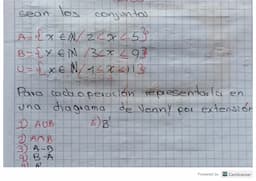 sean los conjuntos
A={x ∈ N/2<x<5}
B={x ∈ N/3<x≤9}
U={x ∈ N/1≤x≤11}
Para cada operación representarla en
una diagrama de Venn y por extensión
1) AUB 6) B'
2) A∩B
3) A-B
4) B-A
Powered by CamScanner